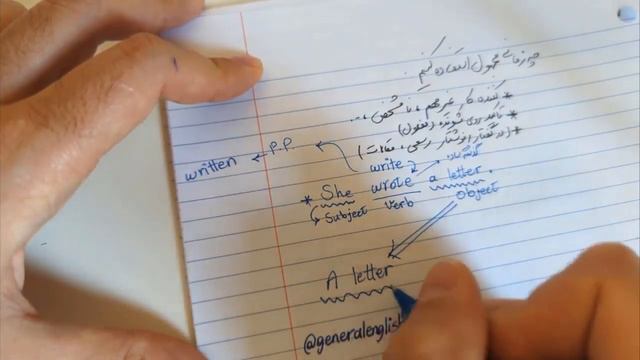 چه زمانی مجهول استفاده کنیم
* کننده کار غیر مهم، نامشخص، ...
* تاکید روی شونده (مفعول)
* (در گفتار / نوشتار رسمی، مقالات)
written ← P.P. ← write
گذشته ساده
* She wrote a letter.
Subject verb object
A letter
@generalenglish